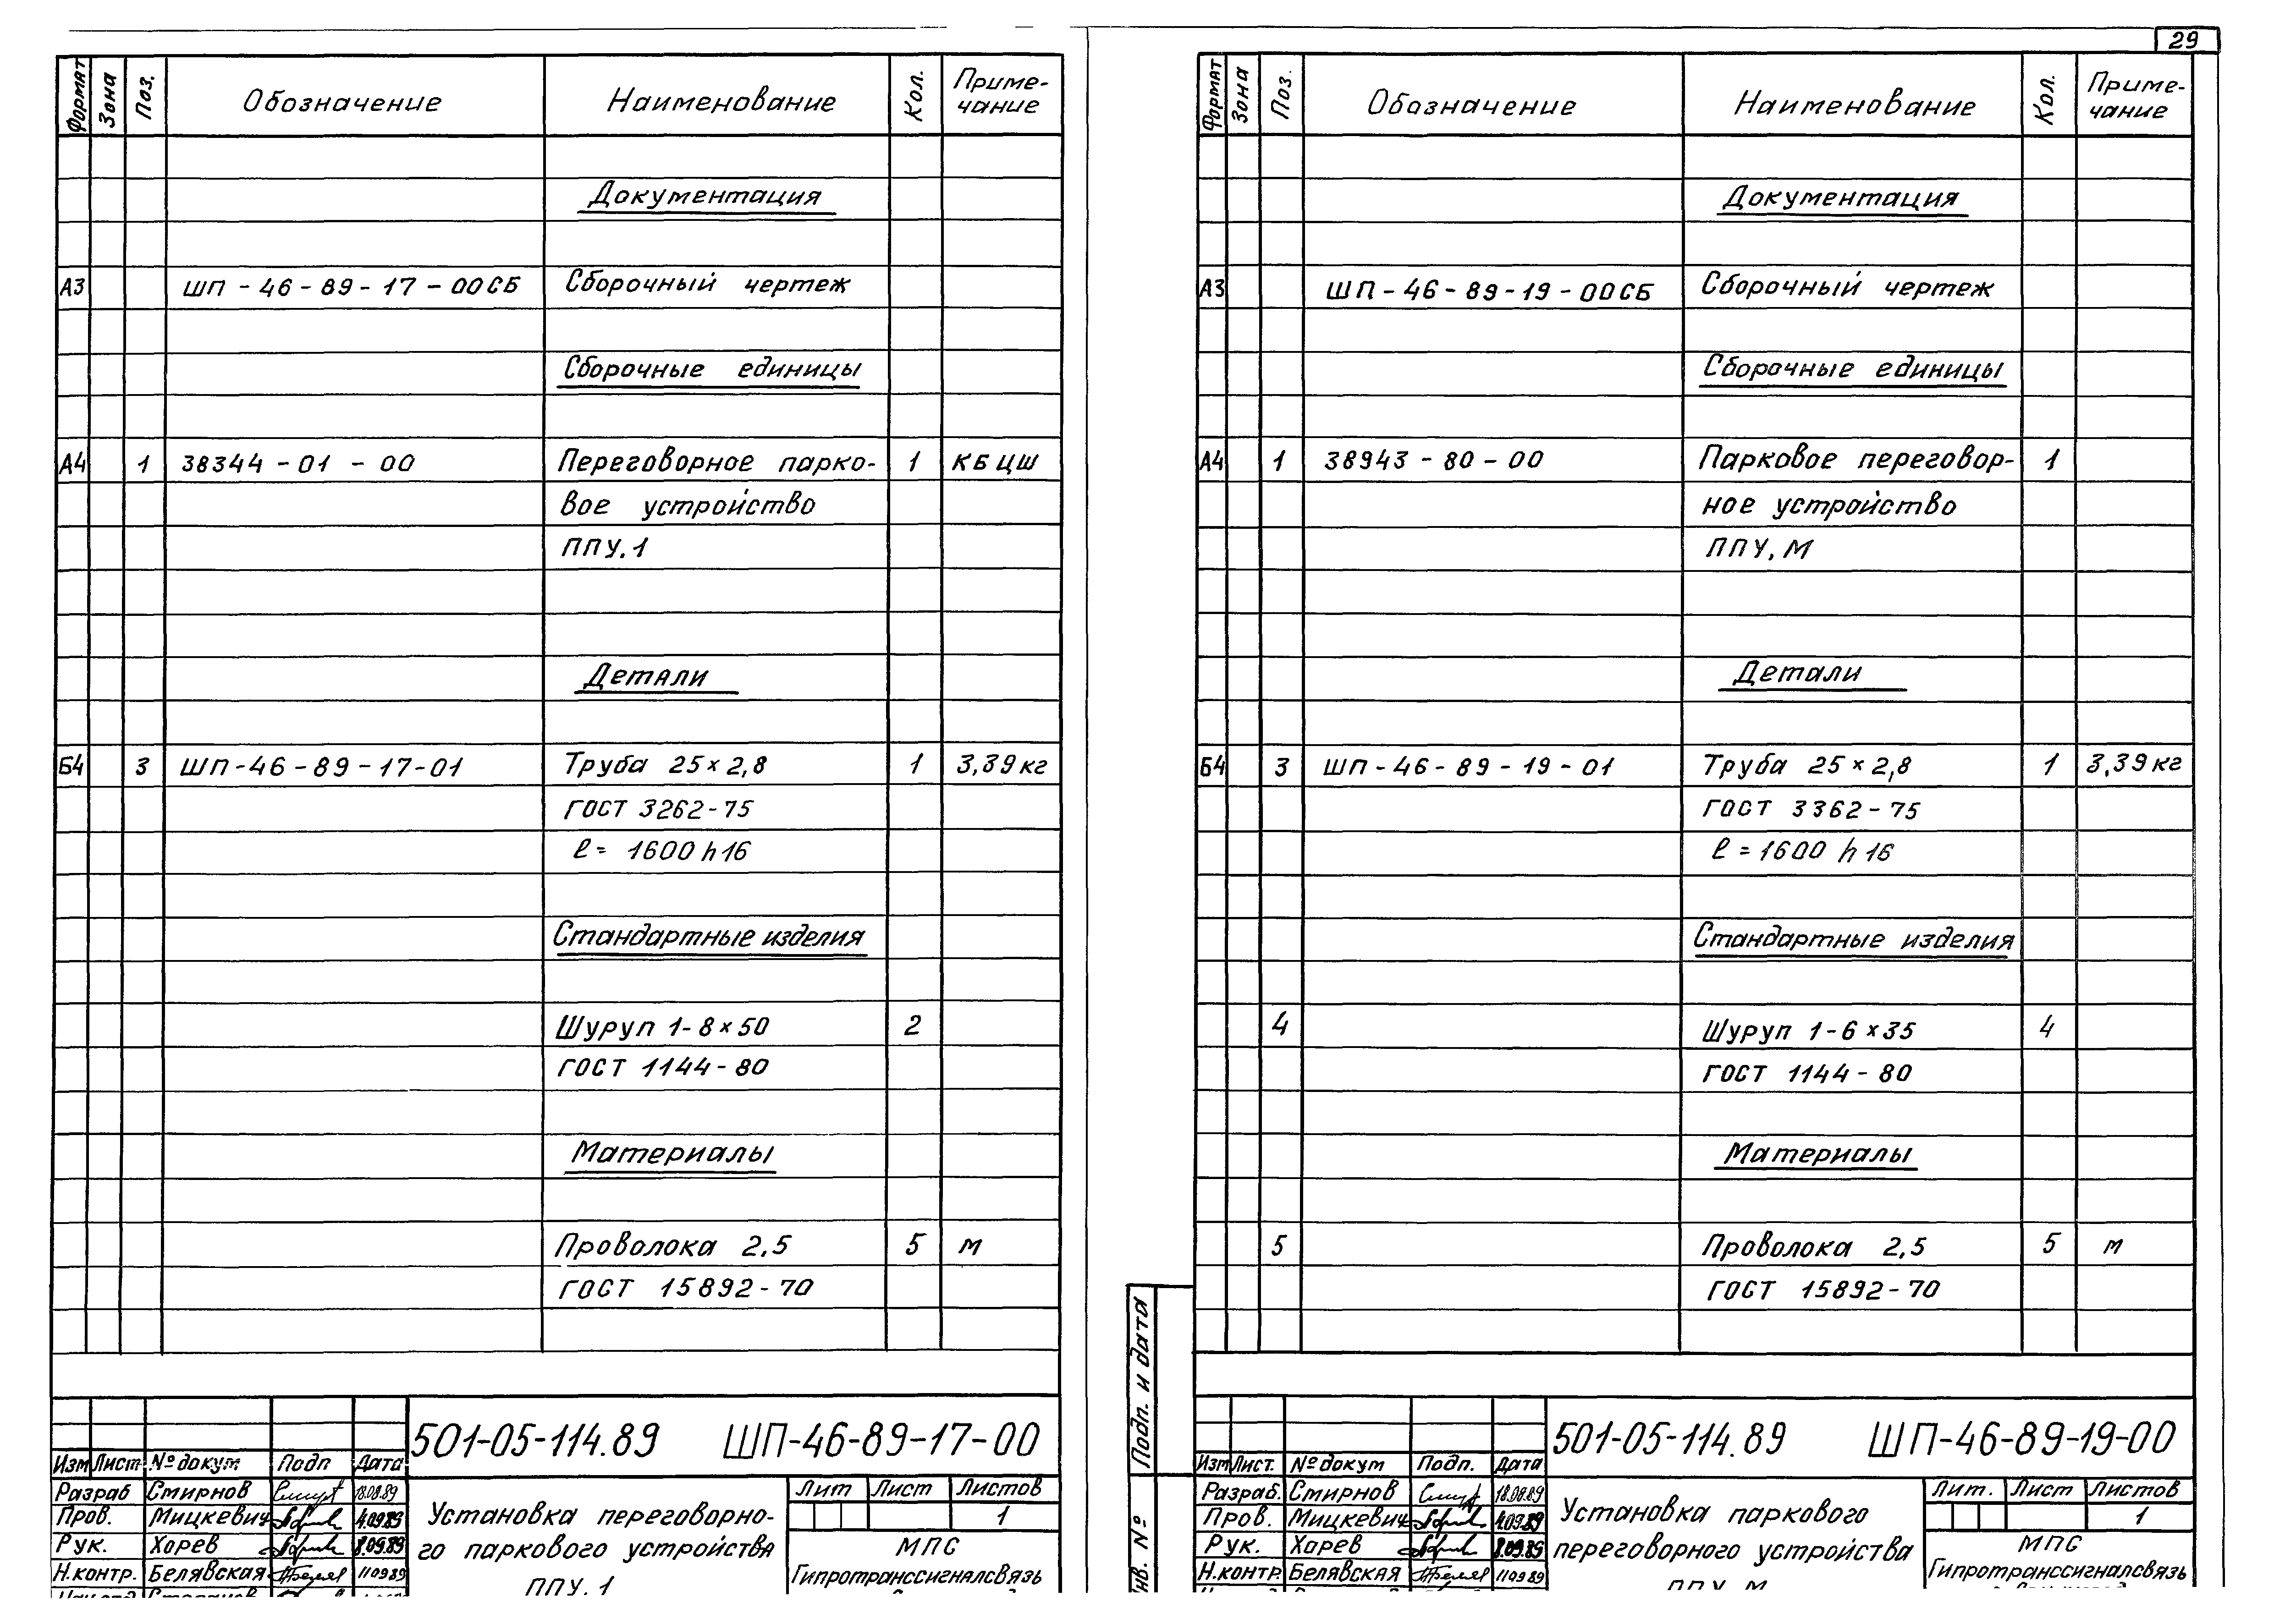 29
Формат Зона Поз. Обозначение Наименование Кол. Приме-
чание
Документация
А3 ШП-46-89-17-00СБ Сборочный чертеж
Сборочные единицы
А4 1 38344-01-00 Переговорное парко- 1 КБ ЦШ
вое устройство
ППУ.1
Детали
Б4 3 ШП-46-89-17-01 Труба 25×2,8 1 3,39кг
ГОСТ 3262-75
ℓ= 1600 h16
Стандартные изделия
Шуруп 1-8×50 2
ГОСТ 1144-80
Материалы
Проволока 2,5 5 м
ГОСТ 15892-70
501-05-114.89 ШП-46-89-17-00
Изм Лист № докум Подп Дата
Разраб Смирнов 18.08.89
Пров. Мицкевич 4.09.89
Рук. Хорев 8.09.89
Н.контр. Белявская 110989
Установка переговорно-
го паркового устройства
ППУ.1
Лит Лист Листов
1
МПС
Гипротранссигналсвязь
Формат Зона Поз. Обозначение Наименование Кол. Приме-
чание
Документация
А3 ШП-46-89-19-00СБ Сборочный чертеж
Сборочные единицы
А4 1 38943-80-00 Парковое переговор- 1
ное устройство
ППУ,М
Детали
Б4 3 ШП-46-89-19-01 Труба 25×2,8 1 3,39кг
ГОСТ 3362-75
ℓ=1600 h16
Стандартные изделия
4 Шуруп 1-6×35 4
ГОСТ 1144-80
Материалы
5 Проволока 2,5 5 м
ГОСТ 15892-70
Подп. и дата
501-05-114.89 ШП-46-89-19-00
Изм Лист. № докум Подп. Дата
Разраб. Смирнов 18.08.89
Пров. Мицкевич 4.09.89
Рук. Хорев 8.09.89
Н.контр. Белявская 110989
Установка паркового
переговорного устройства
ППУ М
Лит. Лист Листов
1
МПС
Гипротранссигналсвязь